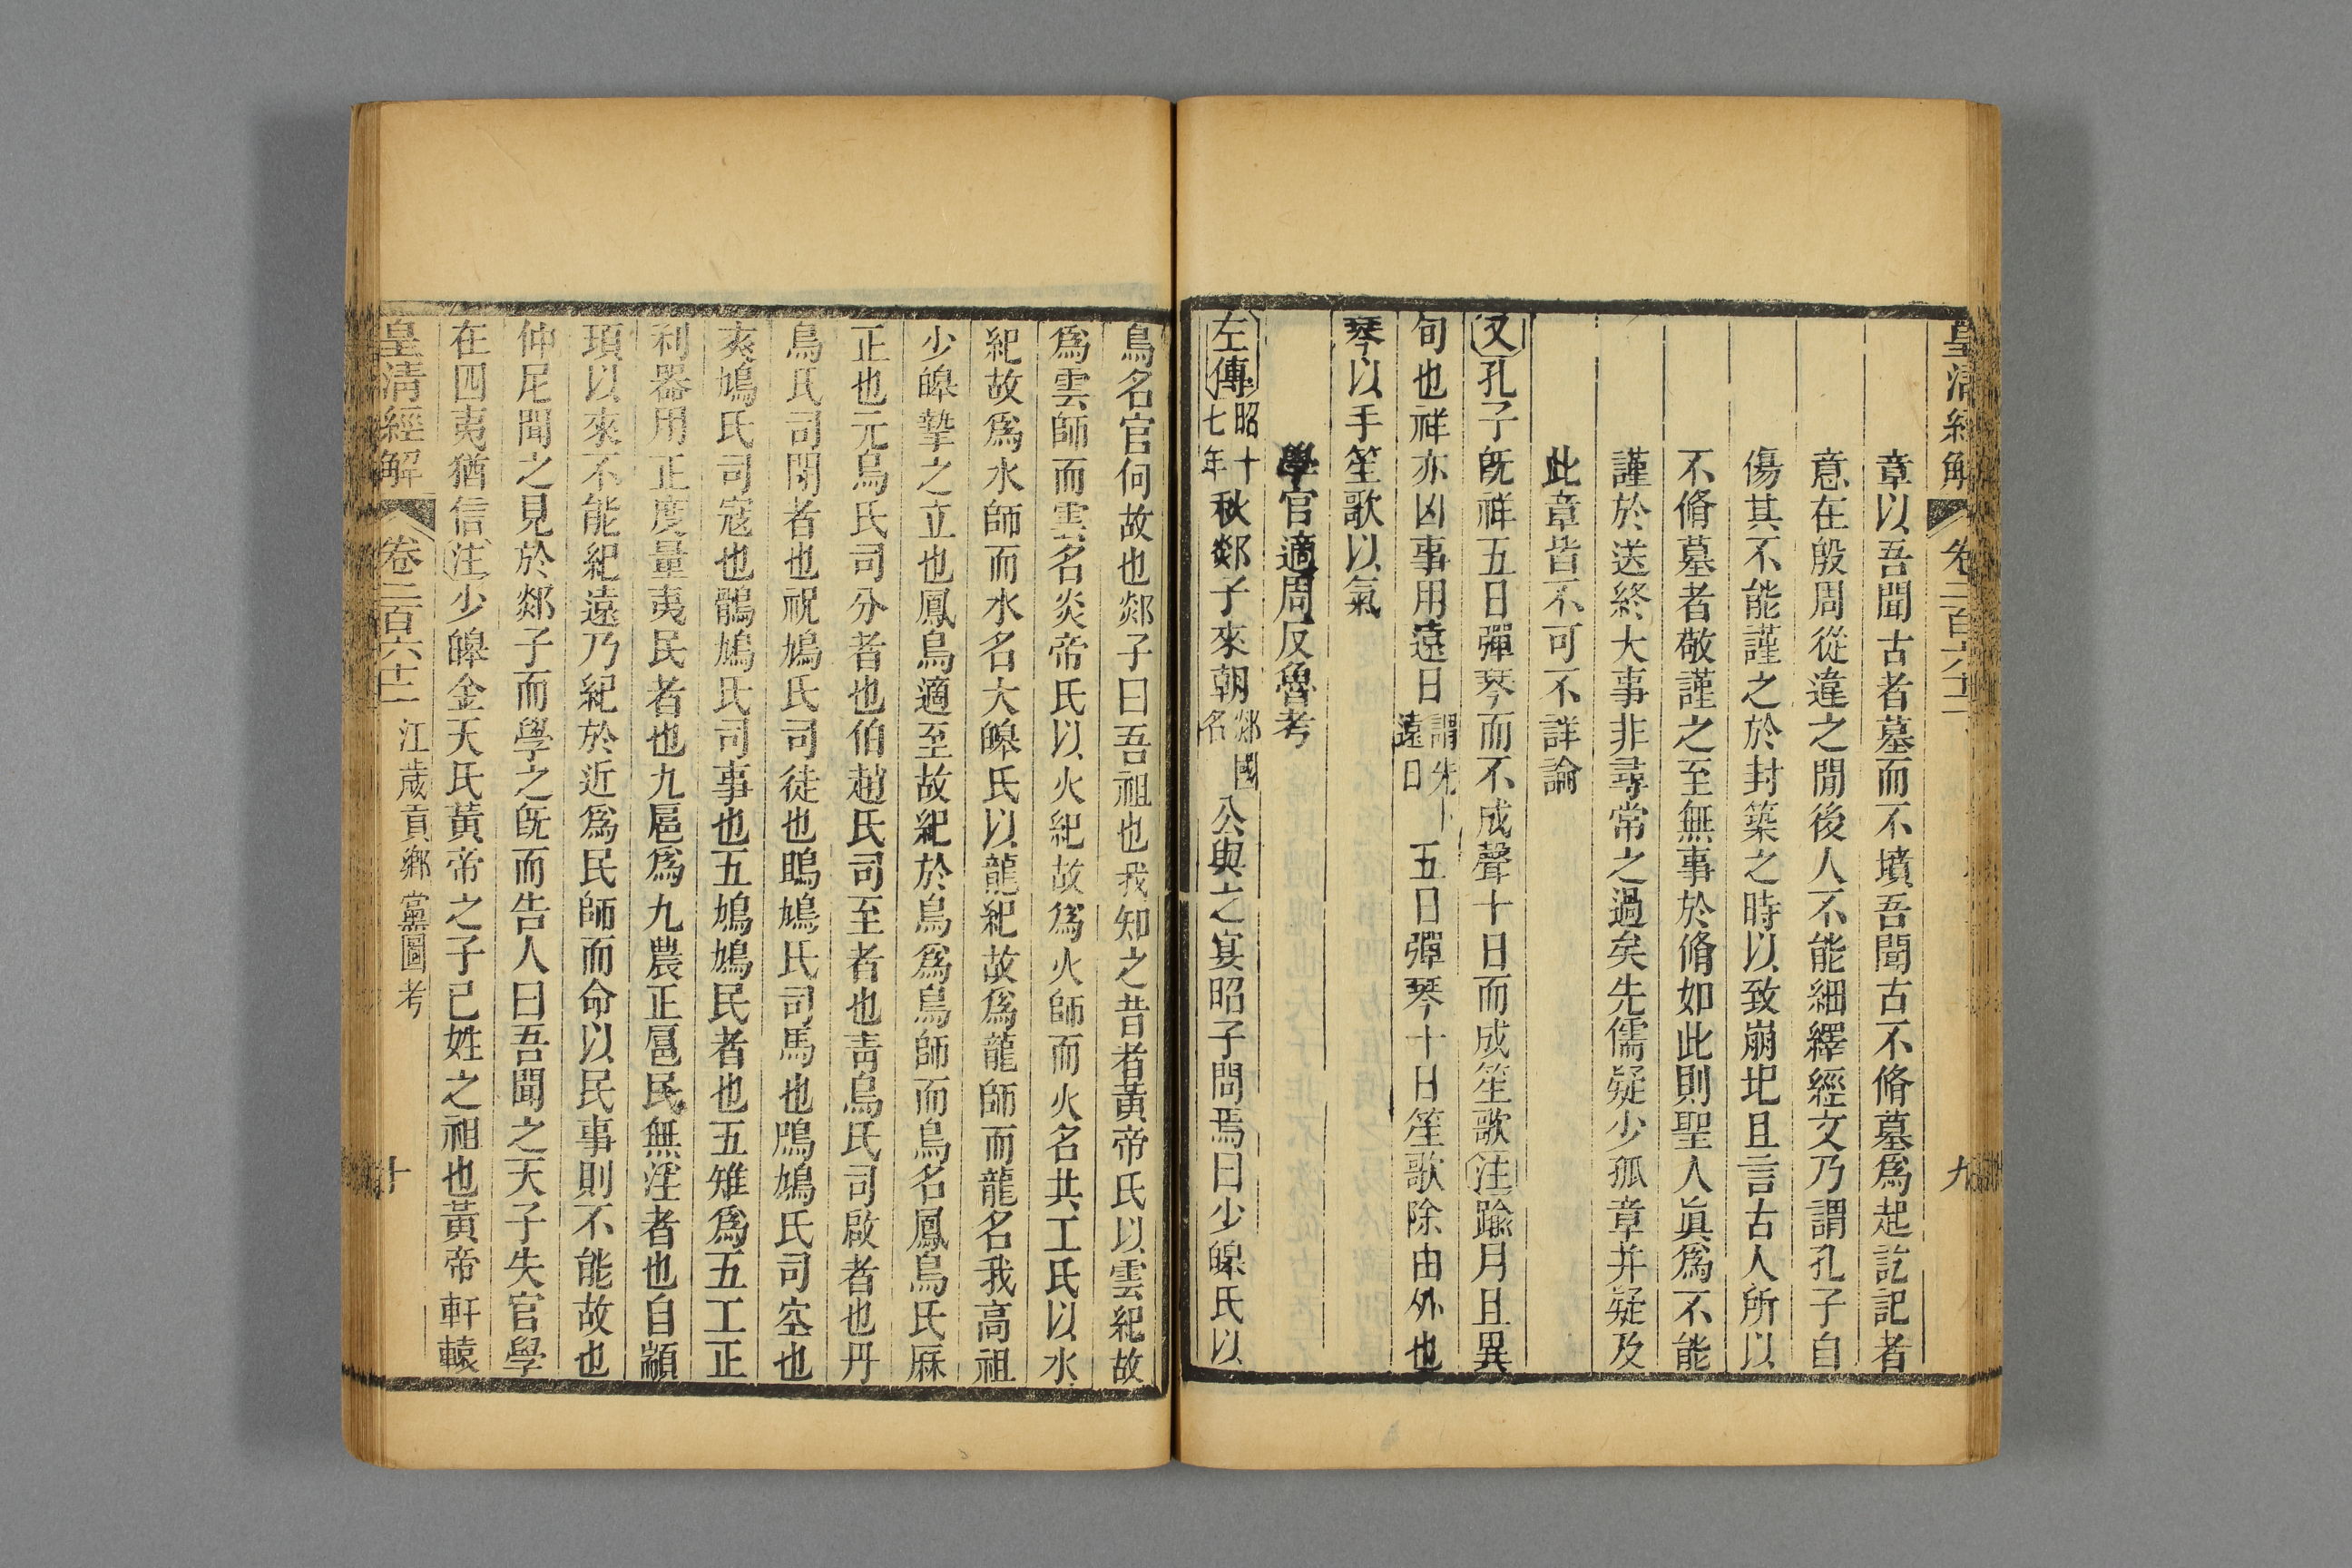 皇清經解 卷二百六十二 九
章以吾聞古者墓而不墳吾聞古不脩墓爲起訖記者
意在殷周從違之閒後人不能細繹經文乃謂孔子自
傷其不能謹之於封築之時以致崩圯且言古人所以
不脩墓者敬謹之至無事於脩如此則聖人眞爲不能
謹於送終大事非尋常之過矣先儒疑少孤章并疑及
此章皆不可不詳論
又孔子旣祥五日彈琴而不成聲十日而成笙歌注踰月且異
旬也祥亦凶事用遠日謂先遠日五日彈琴十日笙歌除由外也
琴以手笙歌以氣
學官適周反魯考
左傳昭十七年秋郯子來朝郯國名公與之宴昭子問焉曰少皥氏以
鳥名官何故也郯子曰吾祖也我知之昔者黃帝氏以雲紀故
爲雲師而雲名炎帝氏以火紀故爲火師而火名共工氏以水
紀故爲水師而水名大皥氏以龍紀故爲龍師而龍名我高祖
少皥摯之立也鳳鳥適至故紀於鳥爲鳥師而鳥名鳳鳥氏厤
正也元鳥氏司分者也伯趙氏司至者也靑鳥氏司啟者也丹
鳥氏司閉者也祝鳩氏司徒也鴡鳩氏司馬也鳲鳩氏司空也
爽鳩氏司寇也鶻鳩氏司事也五鳩鳩民者也五雉爲五工正
利器用正度量夷民者也九扈爲九農正扈民無淫者也自顓
頊以來不能紀遠乃紀於近爲民師而命以民事則不能故也
仲尼聞之見於郯子而學之旣而告人曰吾聞之天子失官學
在四夷猶信注少皥金天氏黃帝之子己姓之祖也黃帝軒轅
皇清經解 卷二百六十二 江歲貢鄉黨圖考 十